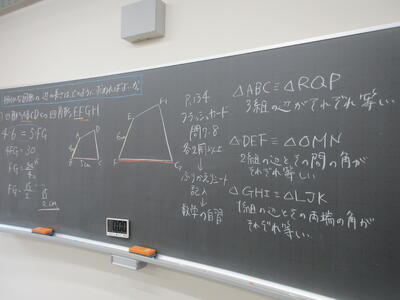 四角形ABCDの四角形EFGH
4:6 = 5:FG
4FG = 30
FG = 30/4
FG = 15/2
15/2 cm
A
D
B
5cm
C
E
H
6
F
G
P.134
フラッシュカード
問7.8
各2周以上
↓
ふりかえりシート
記入
↓
数学の自習
△ABC≡△RQP
3組の辺がそれぞれ等しい
△DEF≡△OMN
2組の辺とその間の角が
それぞれ等しい
△GHI≡△LJK
1組の辺とその両端の角が
それぞれ等しい